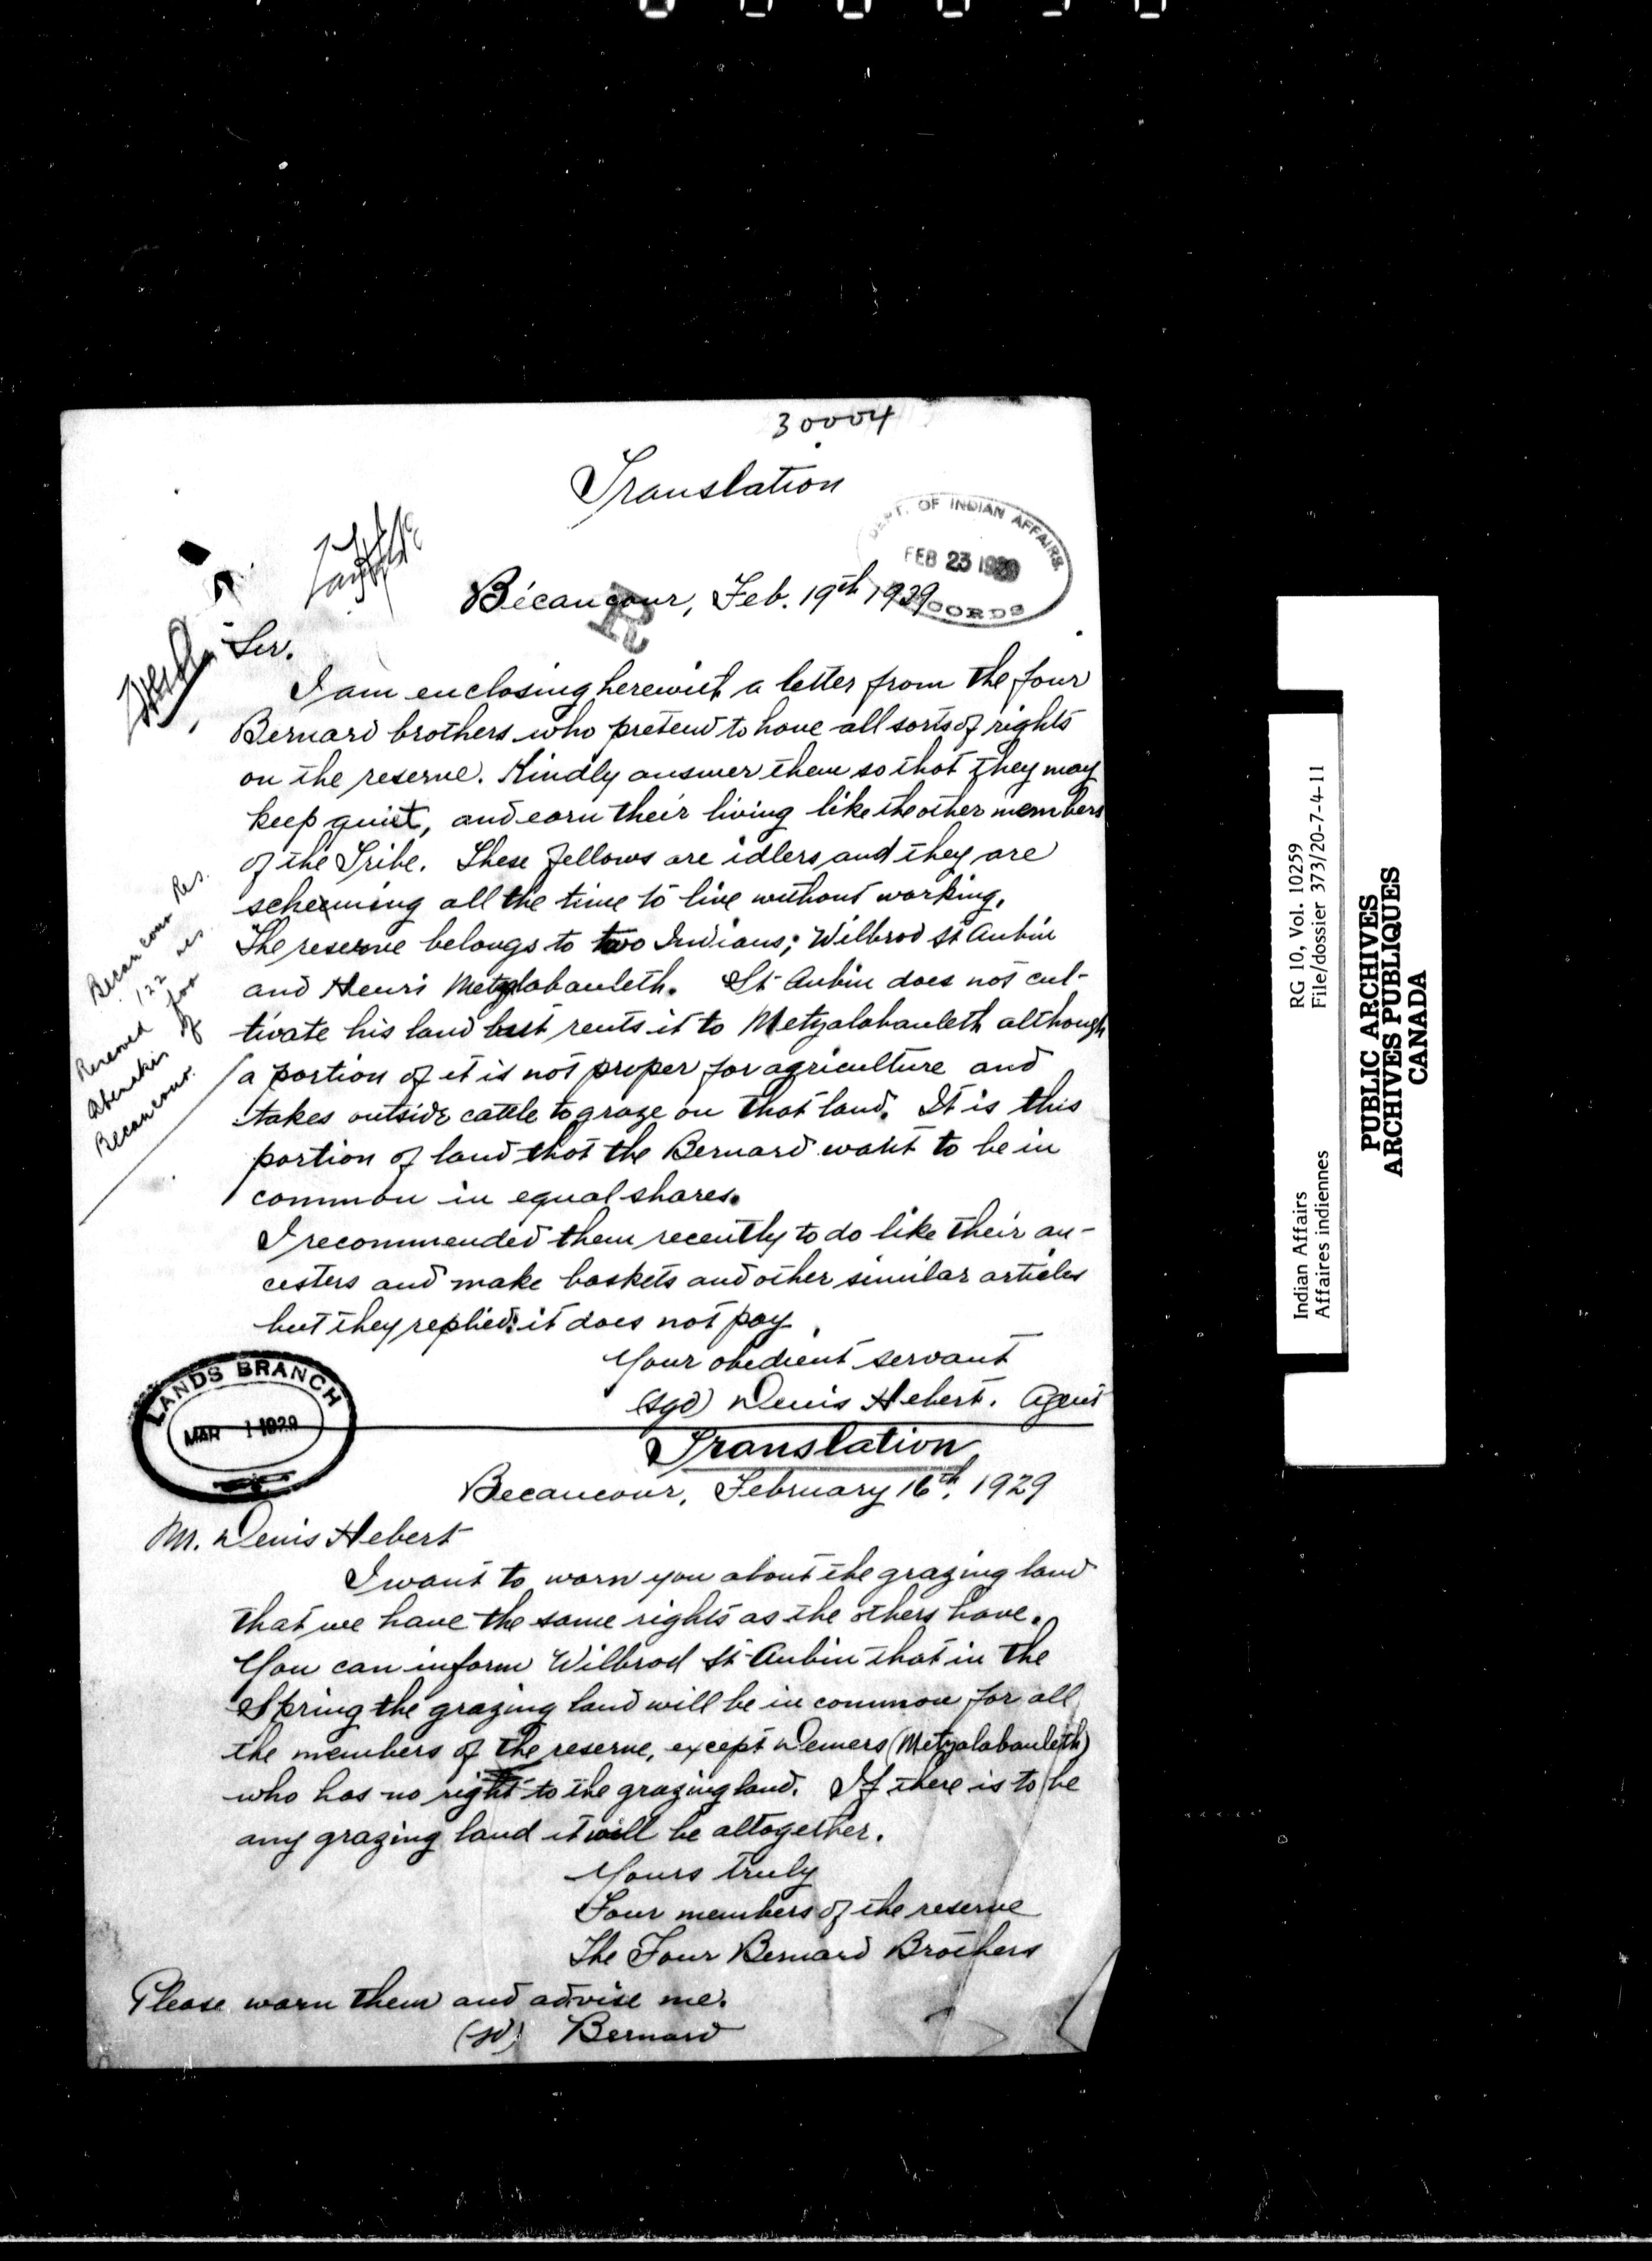 30004
Translation
DEPT. OF INDIAN AFFAIRS.
FEB 23 1929
RECORDS
Bécancour, Feb. 19th 1929
R
Sir.
I am enclosing herewith a letter from the four
Bernard brothers who pretend to have all sorts of rights
on the reserve. Kindly answer them so that they may
keep quiet, and earn their living like the other members
of the Tribe. These fellows are idlers and they are
scheeming all the time to live without working.
The reserve belongs to two Indians; Wilbrod St Aubin
and Henri Metzalabauleth. St Aubin does not cul-
tivate his land but rents it to Metzalabauleth although
a portion of it is not proper for agriculture and
takes outside cattle to graze on that land. It is this
portion of land that the Bernard want to be in
common in equal shares.
I recommended them recently to do like their an-
cesters and make baskets and other similar articles
but they replied: it does not pay.
Your obedient servant
(sgd) Denis Hebert. Agent
Becancour Res.
122 acs
Reserved for
Abenakis of
Becancour.
LANDS BRANCH
MAR 1 1929
Translation
Becancour, February 16th, 1929
Mr. Denis Hebert
I want to warn you about the grazing land
that we have the same rights as the others have.
You can inform Wilbrod St-Aubin that in the
Spring the grazing land will be in common for all
the members of the reserve, except Demers (Metzalabauleth)
who has no right to the grazing land. If there is to be
any grazing land it will be altogether.
Yours truly
Four members of the reserve
The Four Bernard Brothers
Please warn them and advise me.
(sd) Bernard
Indian Affairs RG 10, Vol. 10259
Affaires indiennes File/dossier 373/20-7-4-11
PUBLIC ARCHIVES
ARCHIVES PUBLIQUES
CANADA